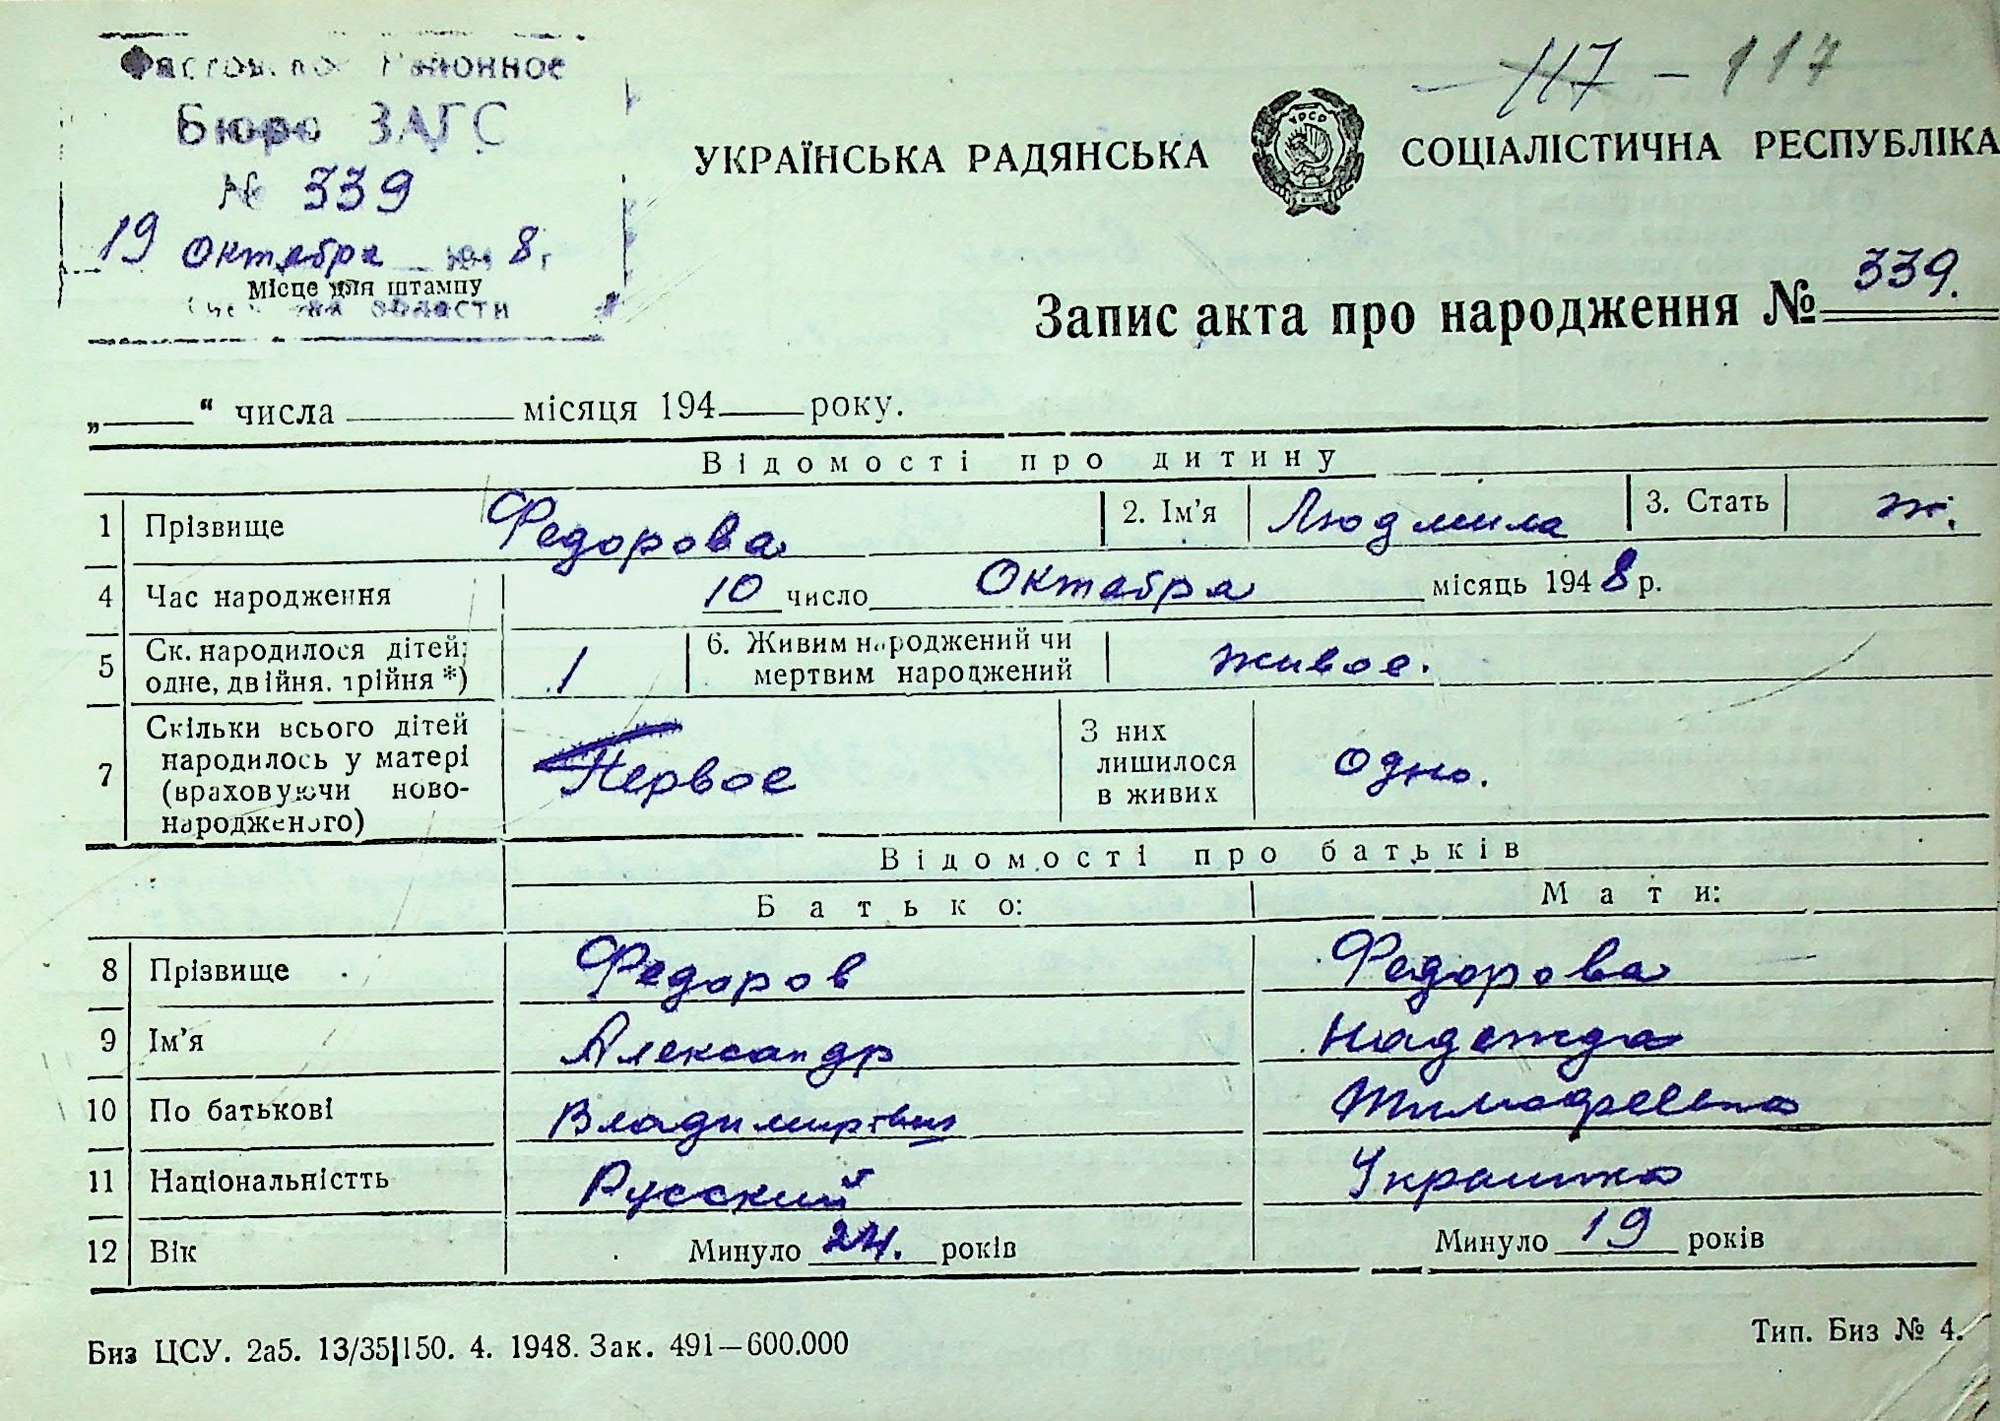 Районное
Бюро ЗАГС
№ 339
19 Октября 1948 г
Місце для штампу
области
117 - 117
УКРАЇНСЬКА РАДЯНСЬКА СОЦІАЛІСТИЧНА РЕСПУБЛІКА
УРСР
Запис акта про народження № 339.
„ “ числа місяця 194 року.
Відомості про дитину
1 Прізвище Федорова 2. Ім'я Людмила 3. Стать ж.
4 Час народження 10 число Октября місяць 1948 р.
5 Ск. народилося дітей: одне, двійня, трійня *) 1 6. Живим народжений чи мертвим народжений живое.
7 Скільки всього дітей народилось у матері (враховуючи ново-народженого) Первое З них лишилося в живих одно.
Відомості про батьків
Батько: Мати:
8 Прізвище Федоров Федорова
9 Ім'я Александр Надежда
10 По батькові Владимирович Тимофеевна
11 Національністть Русский Украинка
12 Вік Минуло 24. років Минуло 19 років
Биз ЦСУ. 2а5. 13/35|150. 4. 1948. Зак. 491—600.000
Тип. Биз № 4.